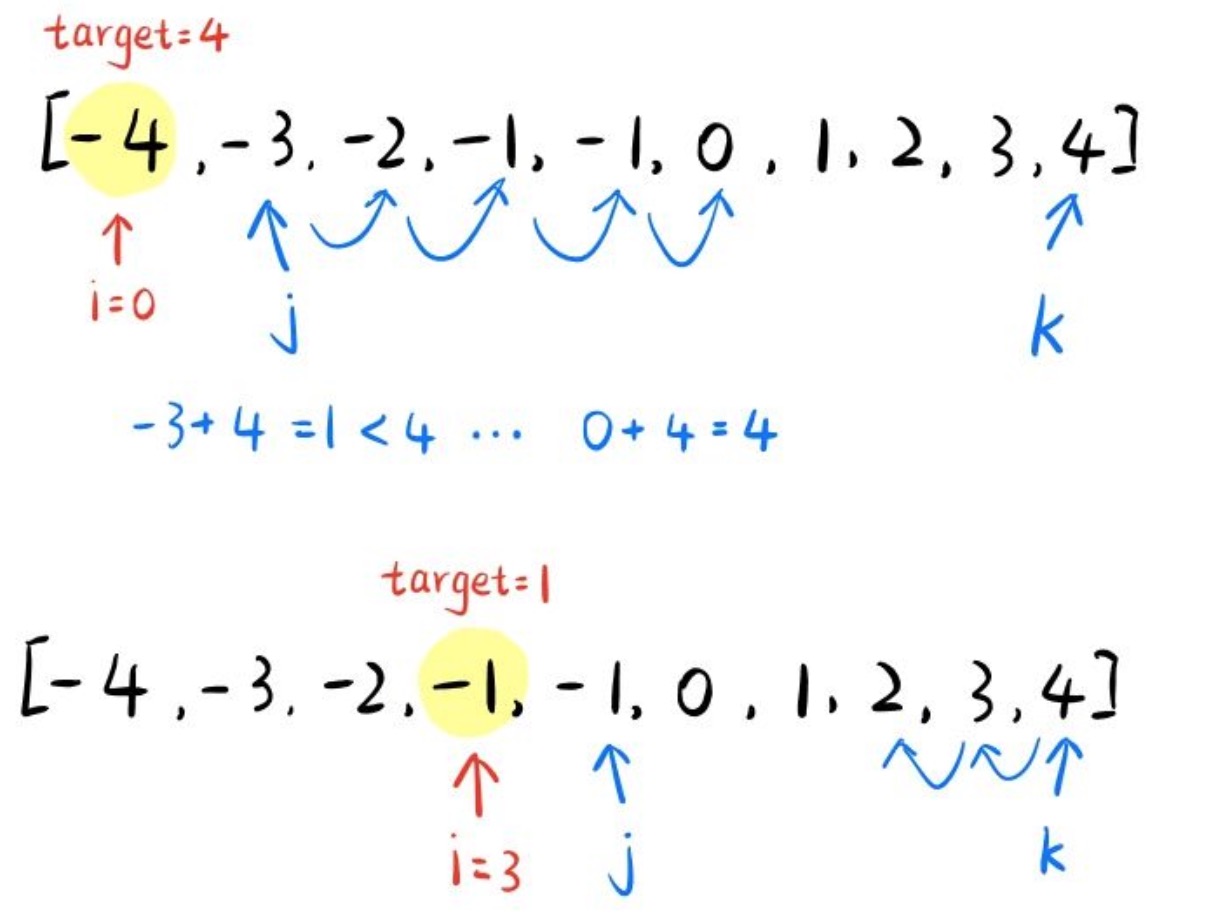 target=4
[-4, -3, -2, -1, -1, 0, 1, 2, 3, 4]
i=0
j
k
-3+4=1<4 ... 0+4=4
target=1
[-4, -3, -2, -1, -1, 0, 1, 2, 3, 4]
i=3
j
k